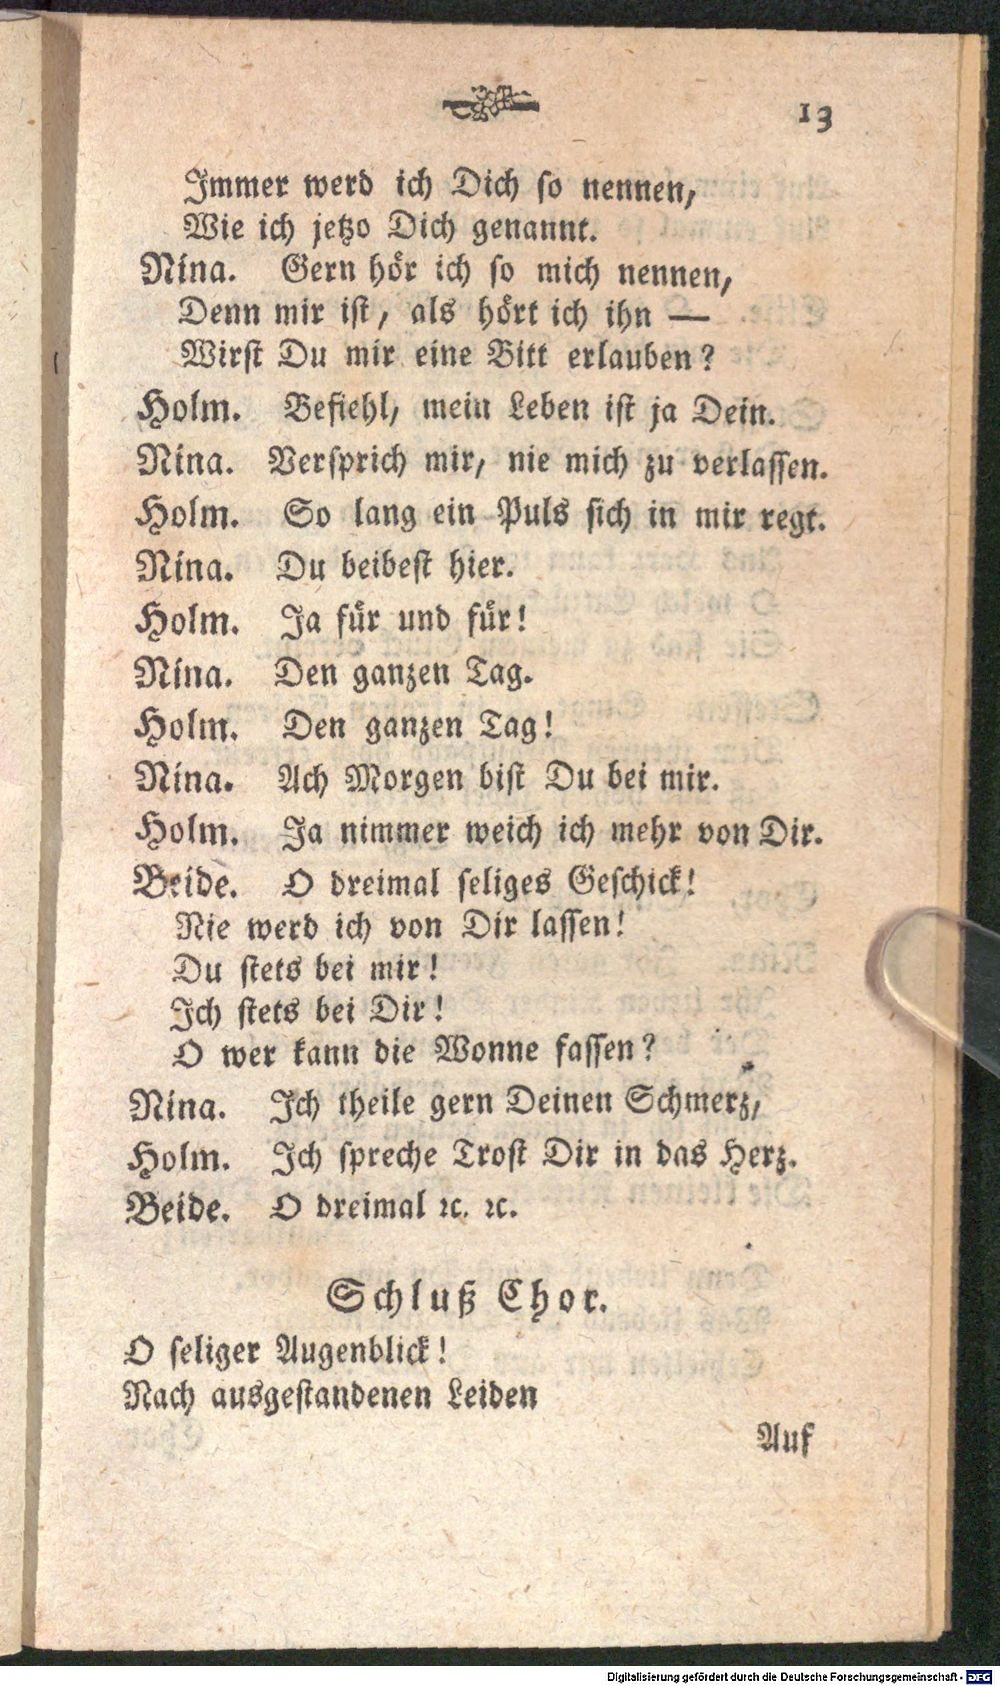 13
Immer werd ich Dich so nennen,
Wie ich jetzo Dich genannt.
Nina. Gern hör ich so mich nennen,
Denn mir ist, als hört ich ihn —
Wirst Du mir eine Bitt erlauben?
Holm. Befiehl, mein Leben ist ja Dein.
Nina. Versprich mir, nie mich zu verlassen.
Holm. So lang ein Puls sich in mir regt.
Nina. Du beibest hier.
Holm. Ja für und für!
Nina. Den ganzen Tag.
Holm. Den ganzen Tag!
Nina. Ach Morgen bist Du bei mir.
Holm. Ja nimmer weich ich mehr von Dir.
Beide. O dreimal seliges Geschick!
Nie werd ich von Dir lassen!
Du stets bei mir!
Ich stets bei Dir!
O wer kann die Wonne fassen?
Nina. Ich theile gern Deinen Schmerz,
Holm. Ich spreche Trost Dir in das Herz.
Beide. O dreimal ꝛc. ꝛc.
Schluß Chor.
O seliger Augenblick!
Nach ausgestandenen Leiden
Auf
Digitalisierung gefördert durch die Deutsche Forschungsgemeinschaft - DFG